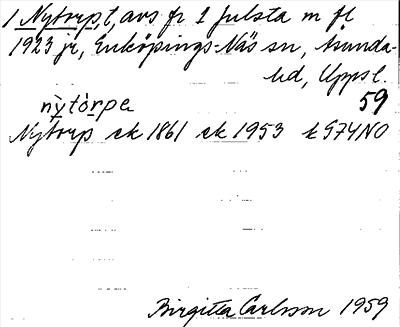 1 Nytorp, t, avs fr 2 Julsta m fl
1923 jr, Enköpings-Näs sn, Åsunda-
hd, Upps l.
nỳtòrpe 59
Nytorp ek 1861 ek 1953 tG74NO
Birgitta Carlsson 1959